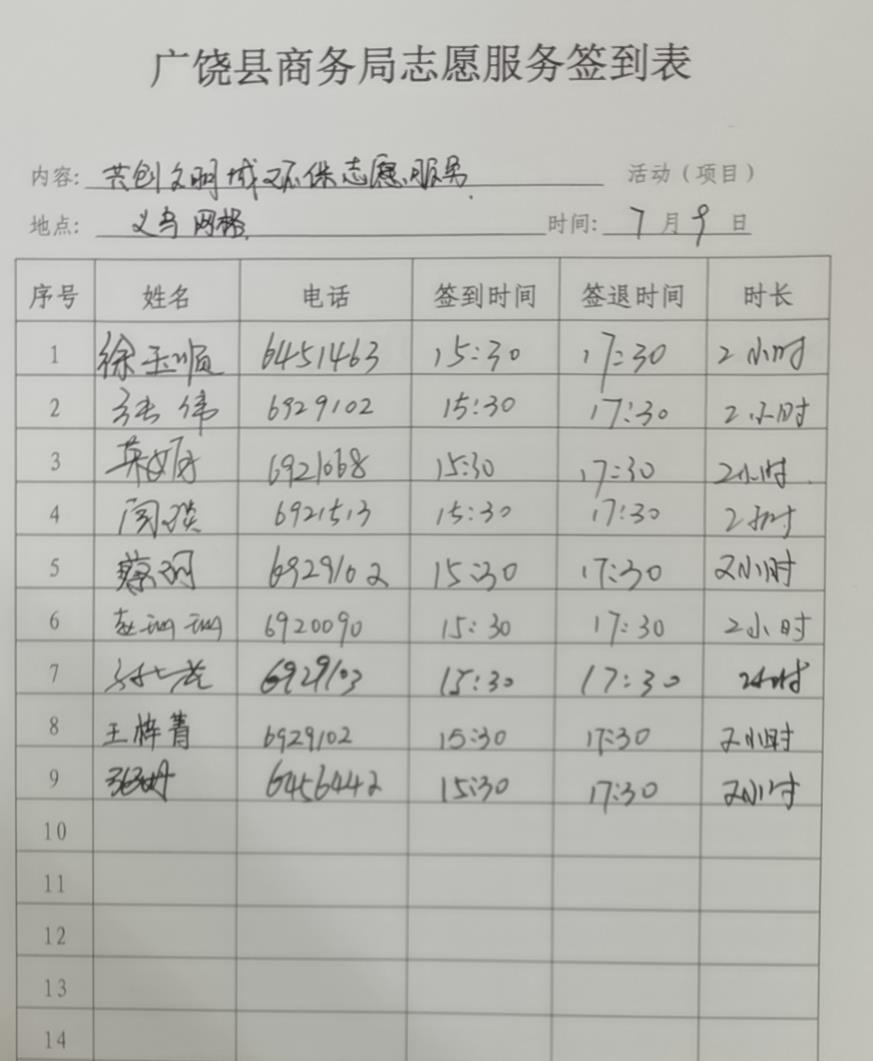 广饶县商务局志愿服务签到表
内容: 共创文明城环保志愿服务 活动（项目）
地点: 义乌网格 时间: 7月9日
序号 姓名 电话 签到时间 签退时间 时长
1 徐玉顺 6451463 15:30 17:30 2小时
2 张伟 6929102 15:30 17:30 2小时
3 6921068 15:30 17:30 2小时
4 闫琰 6921513 15:30 17:30 2小时
5 蔡珂 6929102 15:30 17:30 2小时
6 赵珊珊 6920090 15:30 17:30 2小时
7 6929103 15:30 17:30 2小时
8 王梓菁 6929102 15:30 17:30 2小时
9 6456442 15:30 17:30 2小时
10
11
12
13
14